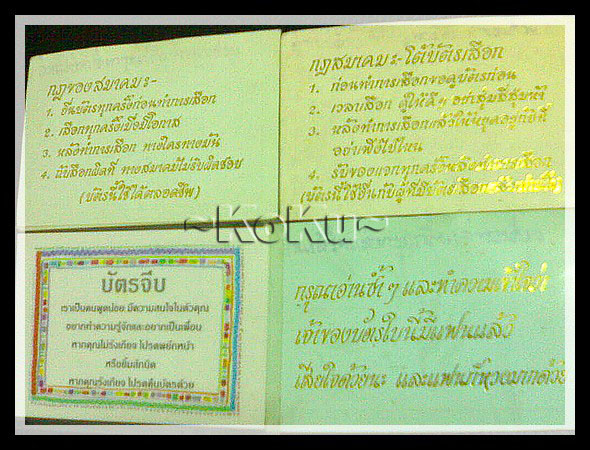 กฎของสมาคม:-
1. ยื่นบัตรทุกครั้งก่อนทำการเสือก
2. เสือกทุกครั้งเมื่อมีโอกาส
3. หลังทำการเสือก ทางใครทางมัน
4. ถ้าเสือกผิดที่ ทางสมาคมไม่รับผิดชอบ
(บัตรนี้ใช้ได้ตลอดชีพ)
กฎสมาคม:- โต้บัตรเสือก
1. ก่อนทำการเสือกขอดูบัตรก่อน
2. เวลาเสือก ดูให้ดีๆ อย่าสุ่มสี่สุ่มห้า
3. หลังทำการเสือกแล้วให้หยุดอยู่กับที่
อย่าพึ่งไปไหน
4. รับของแจกทุกครั้งหลังทำการเสือก
(บัตรนี้ใช้ยื่นกับผู้ที่มีบัตรเสือก
~KoKu~
บัตรจีบ
เราเป็นคนพูดน้อย มีความสนใจในตัวคุณ
อยากทำความรู้จักและอยากเป็นเพื่อน
หากคุณไม่รังเกียจ โปรดพยักหน้า
หรือยิ้มสักนิด
หากคุณรังเกียจ โปรดคืนบัตรด้วย
กรุณาอ่านซ้ำๆ และทำความเข้าใจว่า
เจ้าของบัตรใบนี้มีแฟนแล้ว
เสียใจด้วยนะ และแฟนก็หวงมากด้วย